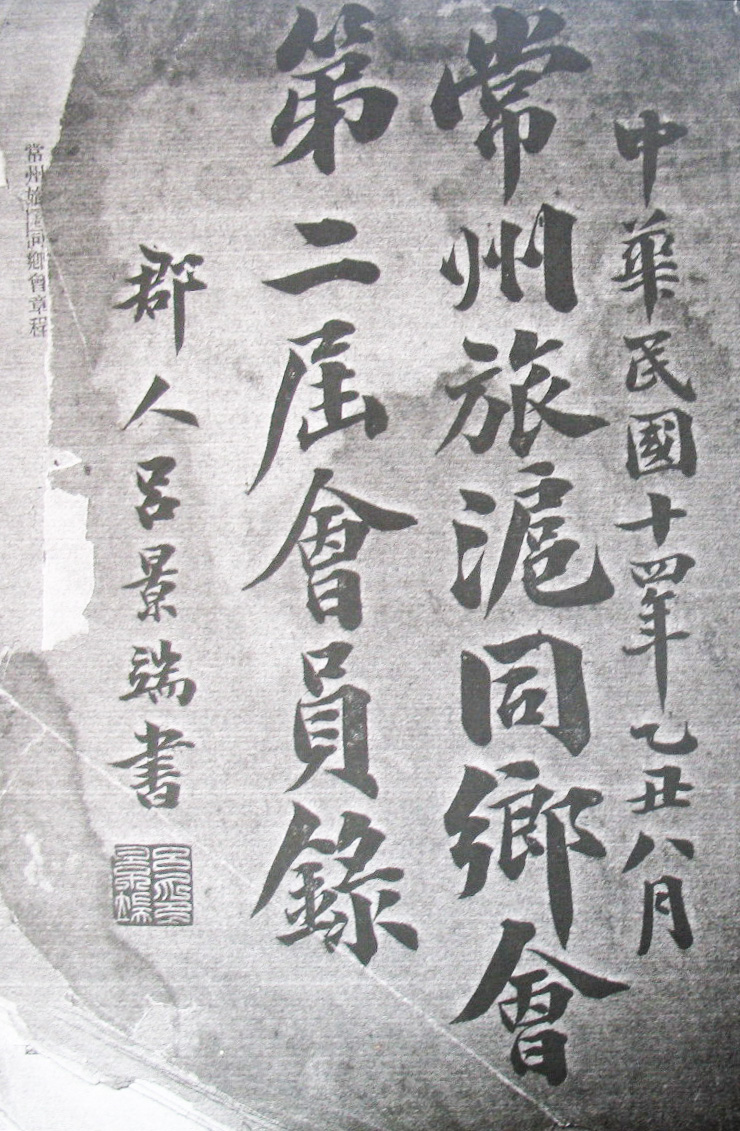 中華民國十四年乙丑八月
常州旅滬同鄉會
第二屆會員錄
郡人呂景端書
常州旅滬同鄉會章程